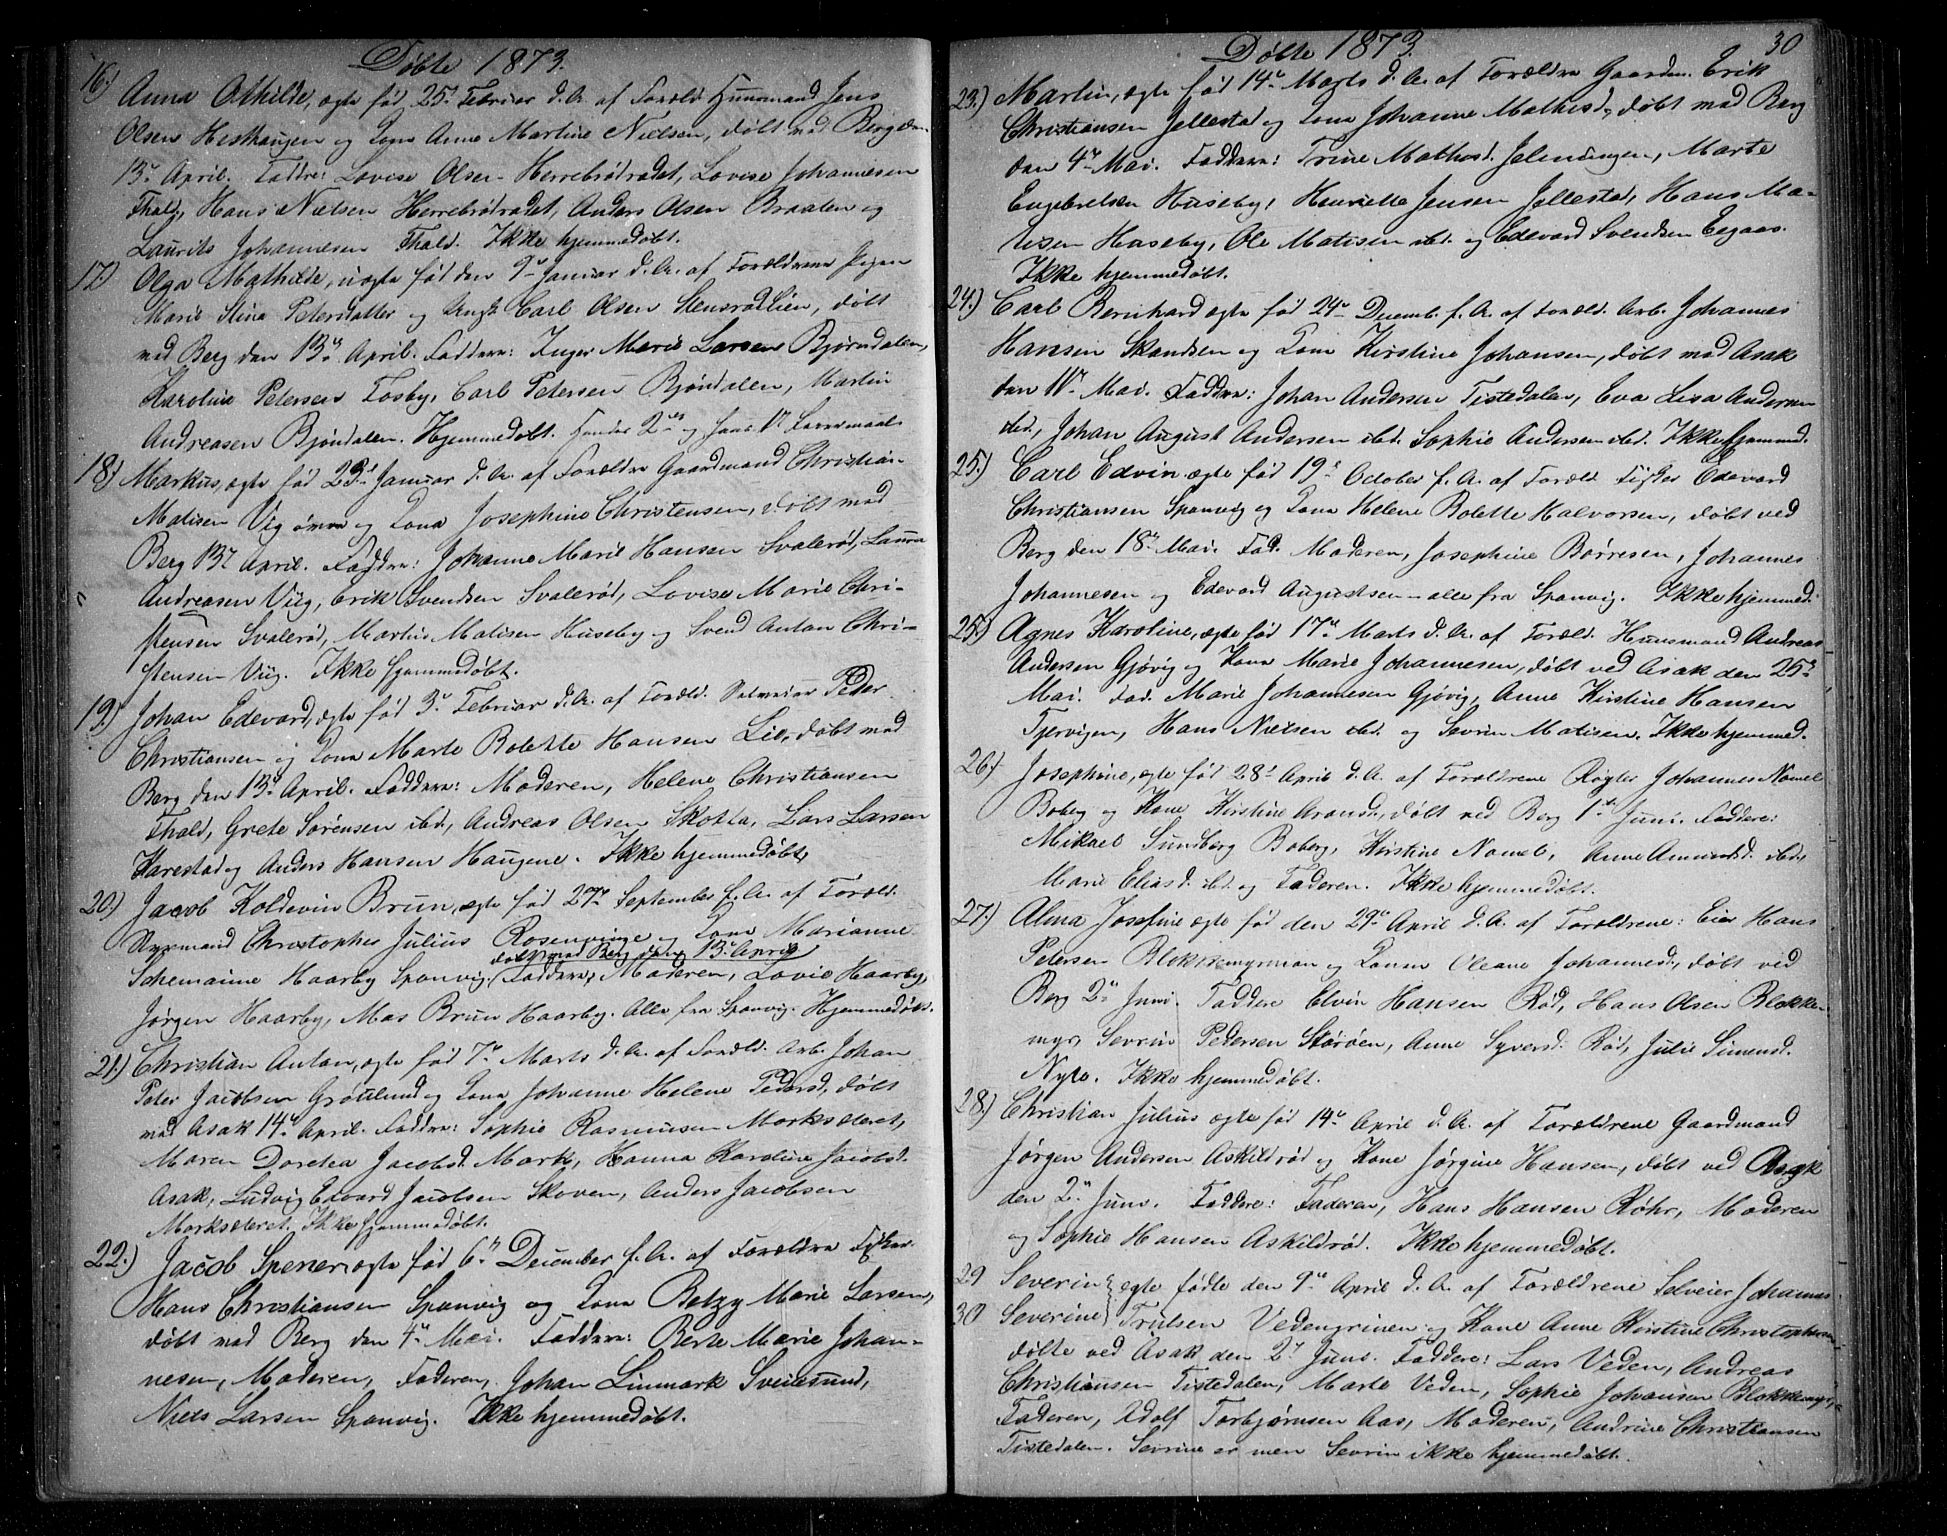 Døbte 1873.
16.) Anna Othilde, ægte født 25de Februar d. A. af Foræld: Huusmand Jens
Olsen Hesthaugen og Kone Anne Martine Nielsen, døbt ved Berg den
13de April. Faddre: Lovise Olsen Herrebrødradet, Lovise Johannesen
Thald, Hans Nielsen Herrebrødradet, Anders Olsen Braaten og
Laurits Johannesen Thald. Ikke hjemmedøbt.
17.) Olga Mathilde, uægte født den 9de Januar d. A. af Forældrene Pigen
Marie Stina Petersdatter og Ungk. Carl Olsen Stensrødlien, døbt
ved Berg den 13de April. Faddere: Inger Marie Larsen Bjørndalen,
Karoline Petersen Fosby, Carl Petersen Bjøndalen, Martin
Andreasen Bjøndalen. Hjemmedøbt. Hendes 2det og hans 1ste Leiermaal
18.) Markus, ægte født 23de Januar d. A. af Forældre Gaardmand Christian
Matisen Viig øvre og Kone Josephine Christensen, døbt ved
Berg 13de April. Faddre: Johanne Marie Hansen Svalerød, Laura
Andreasen Viig, Erik Svendsen Svalerød, Lovise Marie Chri-
stensen Svalerød, Martin Matisen Huseby og Svend Anton Chri-
stensen Viig. Ikke hjemmedøbt.
19.) Johan Edevard, ægte født 3de Februar d. A. af Foræld. Selveier Peder
Christiansen og Kone Marte Bolette Hansen Lie, døbt ved
Berg den 13de April. Faddere: Moderen, Helene Christiansen
Thald, Grete Sørensen ibd, Andreas Olsen Skotta, Lars Larsen
Karestad og Anders Hansen Haugene. Ikke hjemmedøbt.
20.) Jacob Koldevin Brun, ægte født 27de September f. A. af Foræld.
Styrmand Christopher Julius Rosenvinge og Kone Marianne
døbt ved Berg den 13de April
Haarby Spønvig. Faddere: Moderen, Lovise Haarby,
Jørgen Haarby, Mas Brun Haarby. Alle fra Spønvig. Hjemmedøbt.
21.) Christian Anton, ægte født 7de Marts d. A. af Foræld. Arb. Johan
Peter Jacobsen Grøtlund og Kone Johanne Helene Pedersd, døbt
ved Asak 14de April. Faddre: Sophie Rasmusen Marksæteret,
Maren Dorthea Jacobsd. Mark, Hanna Karoline Jacobsd.
Asak, Ludvig Edvard Jacobsen Skoven, Anders Jacobsen
Marksæteret. Ikke hjemmedøbt.
22.) Jacob Spener, ægte født 6te December f. A. af Forældre Fisker
Hans Christiansen Spønvig og Kone Betzy Marie Larsen,
døbt ved Berg den 4de Mai. Faddere: Berte Marie Johan-
nesen, Moderen, Faderen, Johan Linmark Svinesund,
Niels Larsen Spønvig. Ikke hjemmedøbt.
Døbte 1873. 30
23.) Martin, ægte født 14de Marts d. A. af Forældre Gaardm. Erik
Christiansen Jellestad og Kone Johanne Mathisd, døbt ved Berg
den 4de Mai. Faddere: Trine Mathisd. Jelningen, Marte
Engebretsen Huseby, Henriette Jensen Jellestad, Hans Ma-
tisen Huseby, Ole Matisen ibd. og Edevard Svendsen Eegaas.
Ikke hjemmedøbt.
24.) Carl Bernhard ægte født 24de Decemb. f. A. af Foræld. Arb. Johannes
Hansen Skandsen og Kone Kirstine Johansen, døbt ved Asak
den 11te Mai. Faddre: Johan Andersen Tistedalen, Eva Lisa Andersen
ibd, Johan August Andersen ibd. Sophie Andersen ibd. Ikke hjemmed.
25.) Carl Edvin ægte født 19de October f. A. af Foræld Fisker Edevard
Christiansen Spønvig og Kone Helene Bolette Halvorsen, døbt ved
Berg den 18de Mai. Fad. Moderen, Josephine Børresen, Johannes
Johannesen og Edevard Augustsen – alle fra Spønvig. Ikke hjemmed.
25.) Agnes Karoline, ægte født 17de Marts d. A. af Foræld. Huusmand Andreas
Andersen Gjøvig og Kone Marie Johannesen, døbt ved Asak den 25de
Mai. Fad. Marie Johannesen Gjøvig, Anne Kirstine Hansen
Tjervigen, Hans Nielsen ibd. og Sevrin Matisen. Ikke hjemmed.
26.) Josephine, ægte født 28de April d. A. af Forældrene Røgter Johannes
Boberg og Kone Kirstine døbt ved Berg 1ste Juni. Faddere:
Mikael Sundberg Boberg, Kirstine Anne Amundsd. ibd,
Marie Eliasd. ibd. og Faderen. Ikke hjemmedøbt.
27.) Alma Josefine ægte født den 29de April d. A. af Forældrene: Eier Hans
Petersen Blokkemyrmoen og Konen Oleane Johannesd, døbt ved
Berg 2den Juni. Faddere Elvin Hansen Rød, Hans Olsen Blokke-
myr, Sevrin Pedersen Storøen, Anne Syversd. Rød, Julie Simensd.
Ikke hjemmedøbt.
28.) Christian Julius ægte født 14de April d. A. af Forældrene Gaardmand
Jørgen Andersen Askildrød og Kone Jørgine Hansen, døbt ved Asak
den 2den Juni. Faddere: Faderen, Hans Hansen Røhr, Moderen
og Sophie Hansen Askildrød. Ikke hjemmedøbt.
29 Severin } ægte fødte den 9de April d. A. af Forældrene Selveier Johannes
30 Severine } Trulsen Vedengrinen og Kone Anne Kirstine Christophersen
døbte ved Asak den 2den Juni. Faddere: Lars Veden, Andreas
Christiansen Tistedalen, Marte Veden, Sophie Johansen Blokkemyr,
Faderen, Adolf Torbjørnsen Aas, Moderen, Andrine Christiansen
Tistedalen. Sevrine er men Sevrin ikke hjemmedøbt.